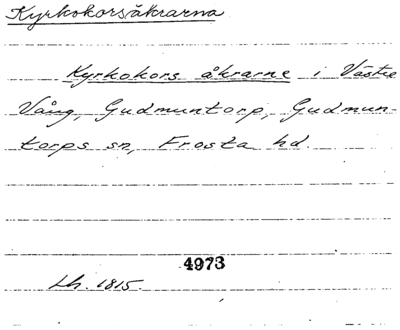 Kyrkokorsåkrarna
Kyrkokors åkrarne i Västre
Vång, Gudmuntorp, Gudmun-
torps sn, Frosta hd.
4973
Lh. 1815.